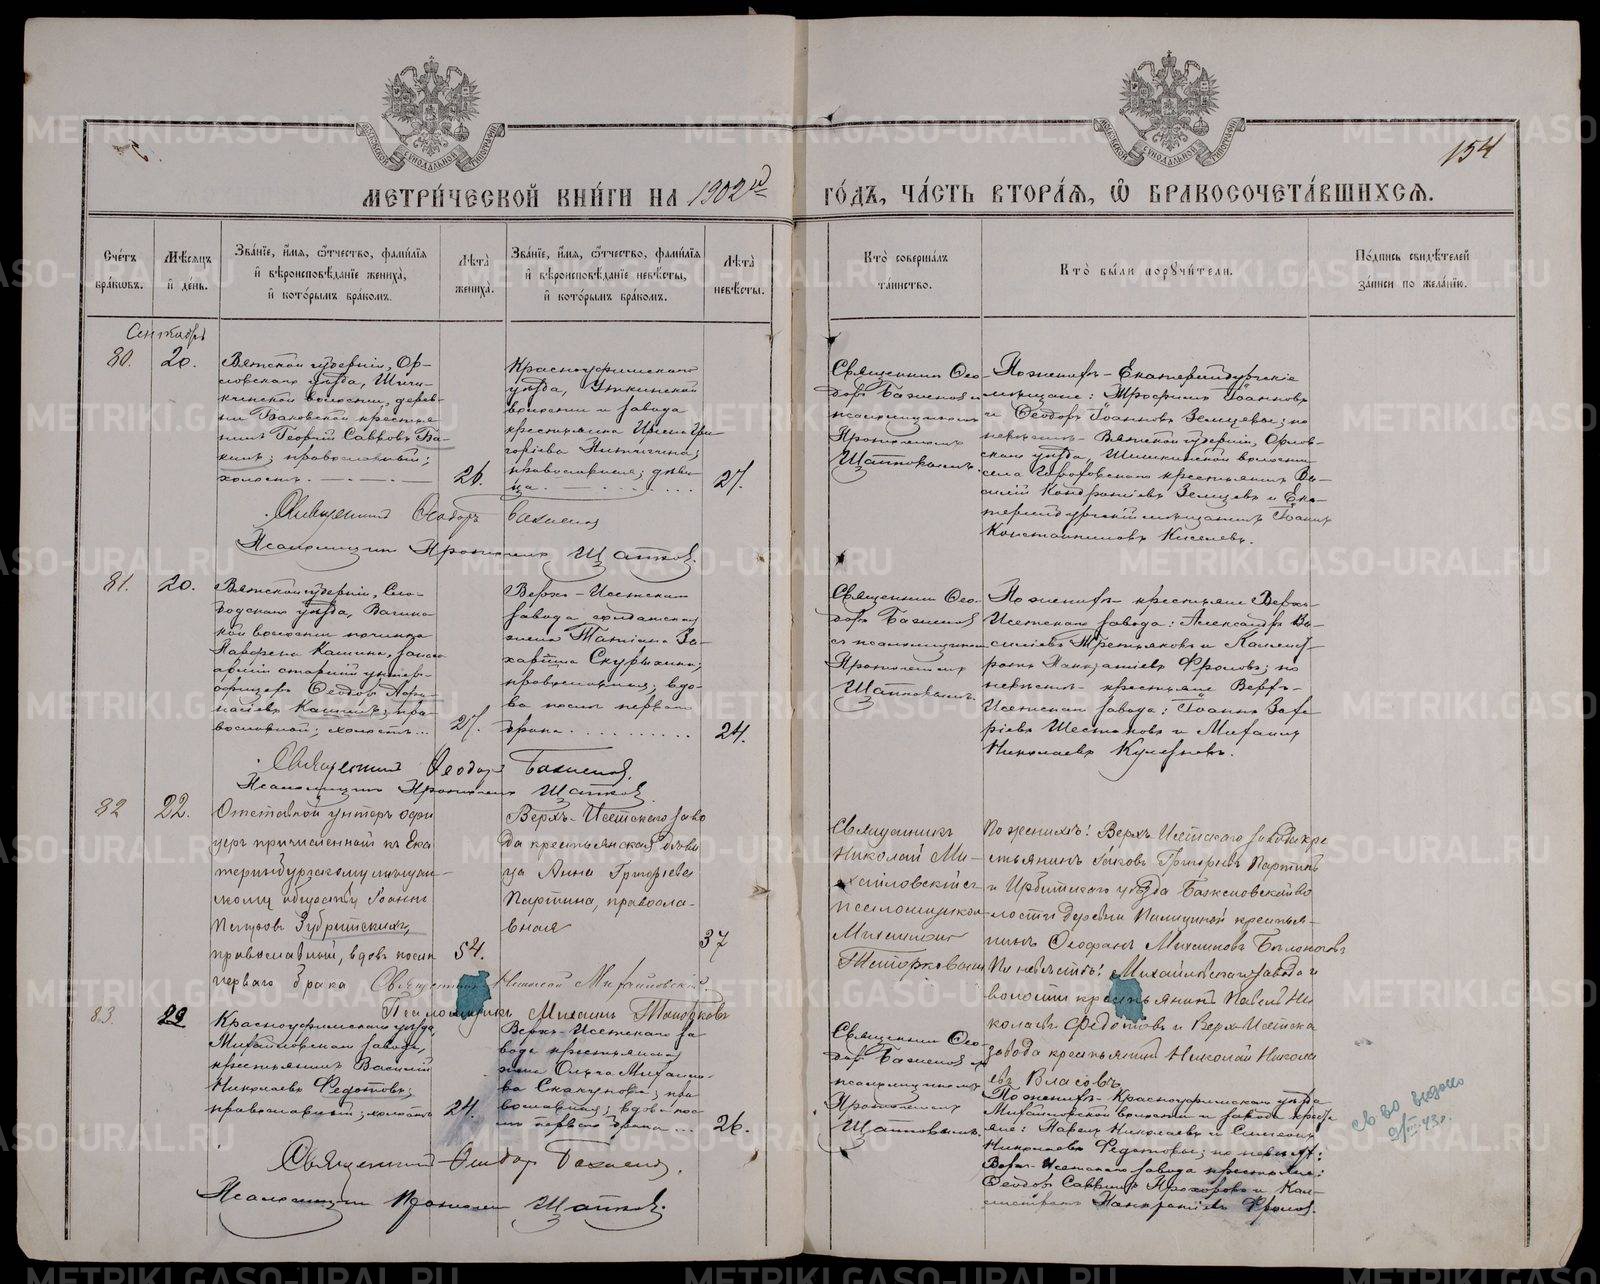 154
МЕТРИ́ЧЕСКОЙ КНИ́ГИ НА 1902й ГО́ДЪ, ЧА́СТЬ ВТОРА́Я, Ѡ БРАКОСОЧЕТА́ВШИХСЯ.
Сче́тъ бра́ковъ.
Мѣ́сяцъ и де́нь.
Зва́нїе, и́мя, ѻ́тчество, фами́лїя и вѣроисповѣ́данїе жениха̀, и кото́рымъ бра́комъ.
Лѣта̀ жениха̀.
Зва́нїе, и́мя, ѻ́тчество, фами́лїя и вѣроисповѣ́данїе невѣ́сты, и кото́рымъ бра́комъ.
Лѣта̀ невѣ́сты.
Кто̀ соверша́лъ та́инство.
Кто̀ бы́ли порꙋчи́тели.
По́дпись свидѣ́телей за́писи по жела́нїю.
Сентябрь
80.
20.
Вятской губернiи, Ор-
ловскаго уѣзда, Шиш-
кинской волости, дерев-
ни крестья
нинъ Георгiй Саввовъ Ба-
кинъ; православный;
холостъ.
26.
Красноуфимскаго
уѣзда, Уткинской
волости и завода
крестьянка Ирина Гри
горiева
православная; дѣви-
ца.
27.
Священникъ Ѳео-
доръ Баженовъ и
псаломщикомъ
Щапковымъ.
По женихѣ - Екатеринбургскiе
мѣщане: Трофимъ Iоанновъ
и Ѳеодоръ Iоанновъ Земцевы; по
невѣстѣ - Вятской губернiи, Орлов-
скаго уѣзда, Шишкинской волости
села крестьянинъ Ва-
силiй Кондратiевъ Земцевъ и Ека-
теринбургскiй мѣщанинъ Iоаннъ
Константиновъ Киселевъ.
Священникъ Ѳеодоръ Баженовъ
Псаломщикъ Щапковъ.
81.
20.
Вятской губернiи, Сло-
бодскаго уѣзда,
кой волости починка
Кашина, запас-
ный старшiй унтеръ-
офицеръ Ѳеодоръ
Кашинъ; пра-
вославной; холостъ...
27.
Верхъ-Исетскаго
завода солдатская
жена Татiана За-
харова Скурыхина;
православная; вдо-
ва послѣ перваго
брака.
24.
Священникъ Ѳео-
доръ Баженовъ
съ псаломщикомъ
Щапковымъ.
По женихѣ - крестьяне Верхъ-
Исетскаго завода: Александръ Ва-
силiевъ Третьяковъ и Калист-
ратъ Панкратiевъ Фроловъ; по
невѣстѣ - крестьяне Верхъ-
Исетскаго завода: Iоаннъ
Шестаковъ и Михаилъ
Николаевъ Кузнецовъ.
Священникъ Ѳеодоръ Баженовъ.
Псаломщикъ Щапковъ.
82
22.
Отставной унтеръ офи
церъ причисленный къ Ека
теринбургскому мѣщан-
скому обществу Iоаннъ
Петровъ Зубрицкихъ,
православный, вдовъ послѣ
перваго брака
54.
Верхъ-Исетскаго заво
да крестьянская дѣви
ца Анна Григорiева
Партина, правосла-
вная
37
Священникъ
Николай Ми-
хайловскiй съ
псаломщикомъ
Михаиломъ
Топорковымъ
По женихѣ: Верхъ Исетскаго завода кре
стьянинъ Iаковъ Григорiевъ Партинъ
и Ирбитскаго уѣзда Баженовской во
лости деревни крестья-
нинъ Ѳеофанъ Михаиловъ
По невѣстѣ: Михайловскаго завода и
волости крестьянинъ Павелъ Ни
колаевъ Федотовъ и Верхъ-Исетска
завода крестьянинъ Николай Никола
евъ Власовъ
Священникъ Николай Михайловскiй.
Псаломщикъ Михаилъ Топорковъ
83.
29
Красноуфимскаго уѣзда
Михайловскаго завода,
крестьянинъ Василiй
Николаевъ Федотовъ;
православный; холостъ
24.
Верхъ-Исетскаго за-
вода крестьянская
жена Ольга Михаило-
ва Скачкунова; пра-
вославная; вдова по-
слѣ перваго брака...
26.
Священникъ Ѳео-
доръ Баженовъ съ
псаломщикомъ
Щапковымъ.
По женихѣ - Красноуфимскаго уѣзда
Михайловской волости и завода кресть
яне: Павелъ Николаевъ и
Николаевъ Федотовы; по невѣстѣ:
Верхъ-Исетскаго завода крестьяне:
Ѳеодоръ Саввинъ Прохоровъ и Кал-
истратъ Панкратiевъ Фроловъ.
Св во выдано
43г.
Священникъ Ѳеодоръ Баженовъ.
Псаломщикъ Щапковъ.
METRIKI.GASO-URAL.RU